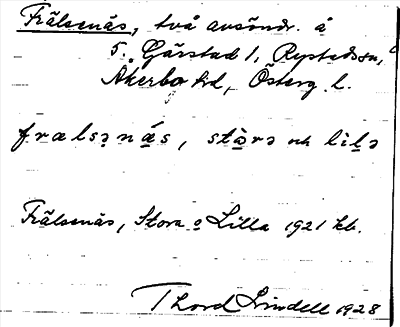 Frälsenäs, två avsöndr. å
5. Gärstad 1, Rystads sn,
Åkerbo hd, Österg. l.
frælsənæs, stòrə ok lilə
Frälsenäs, Stora o Lilla 1921 kb.
Thord Lindell 1928